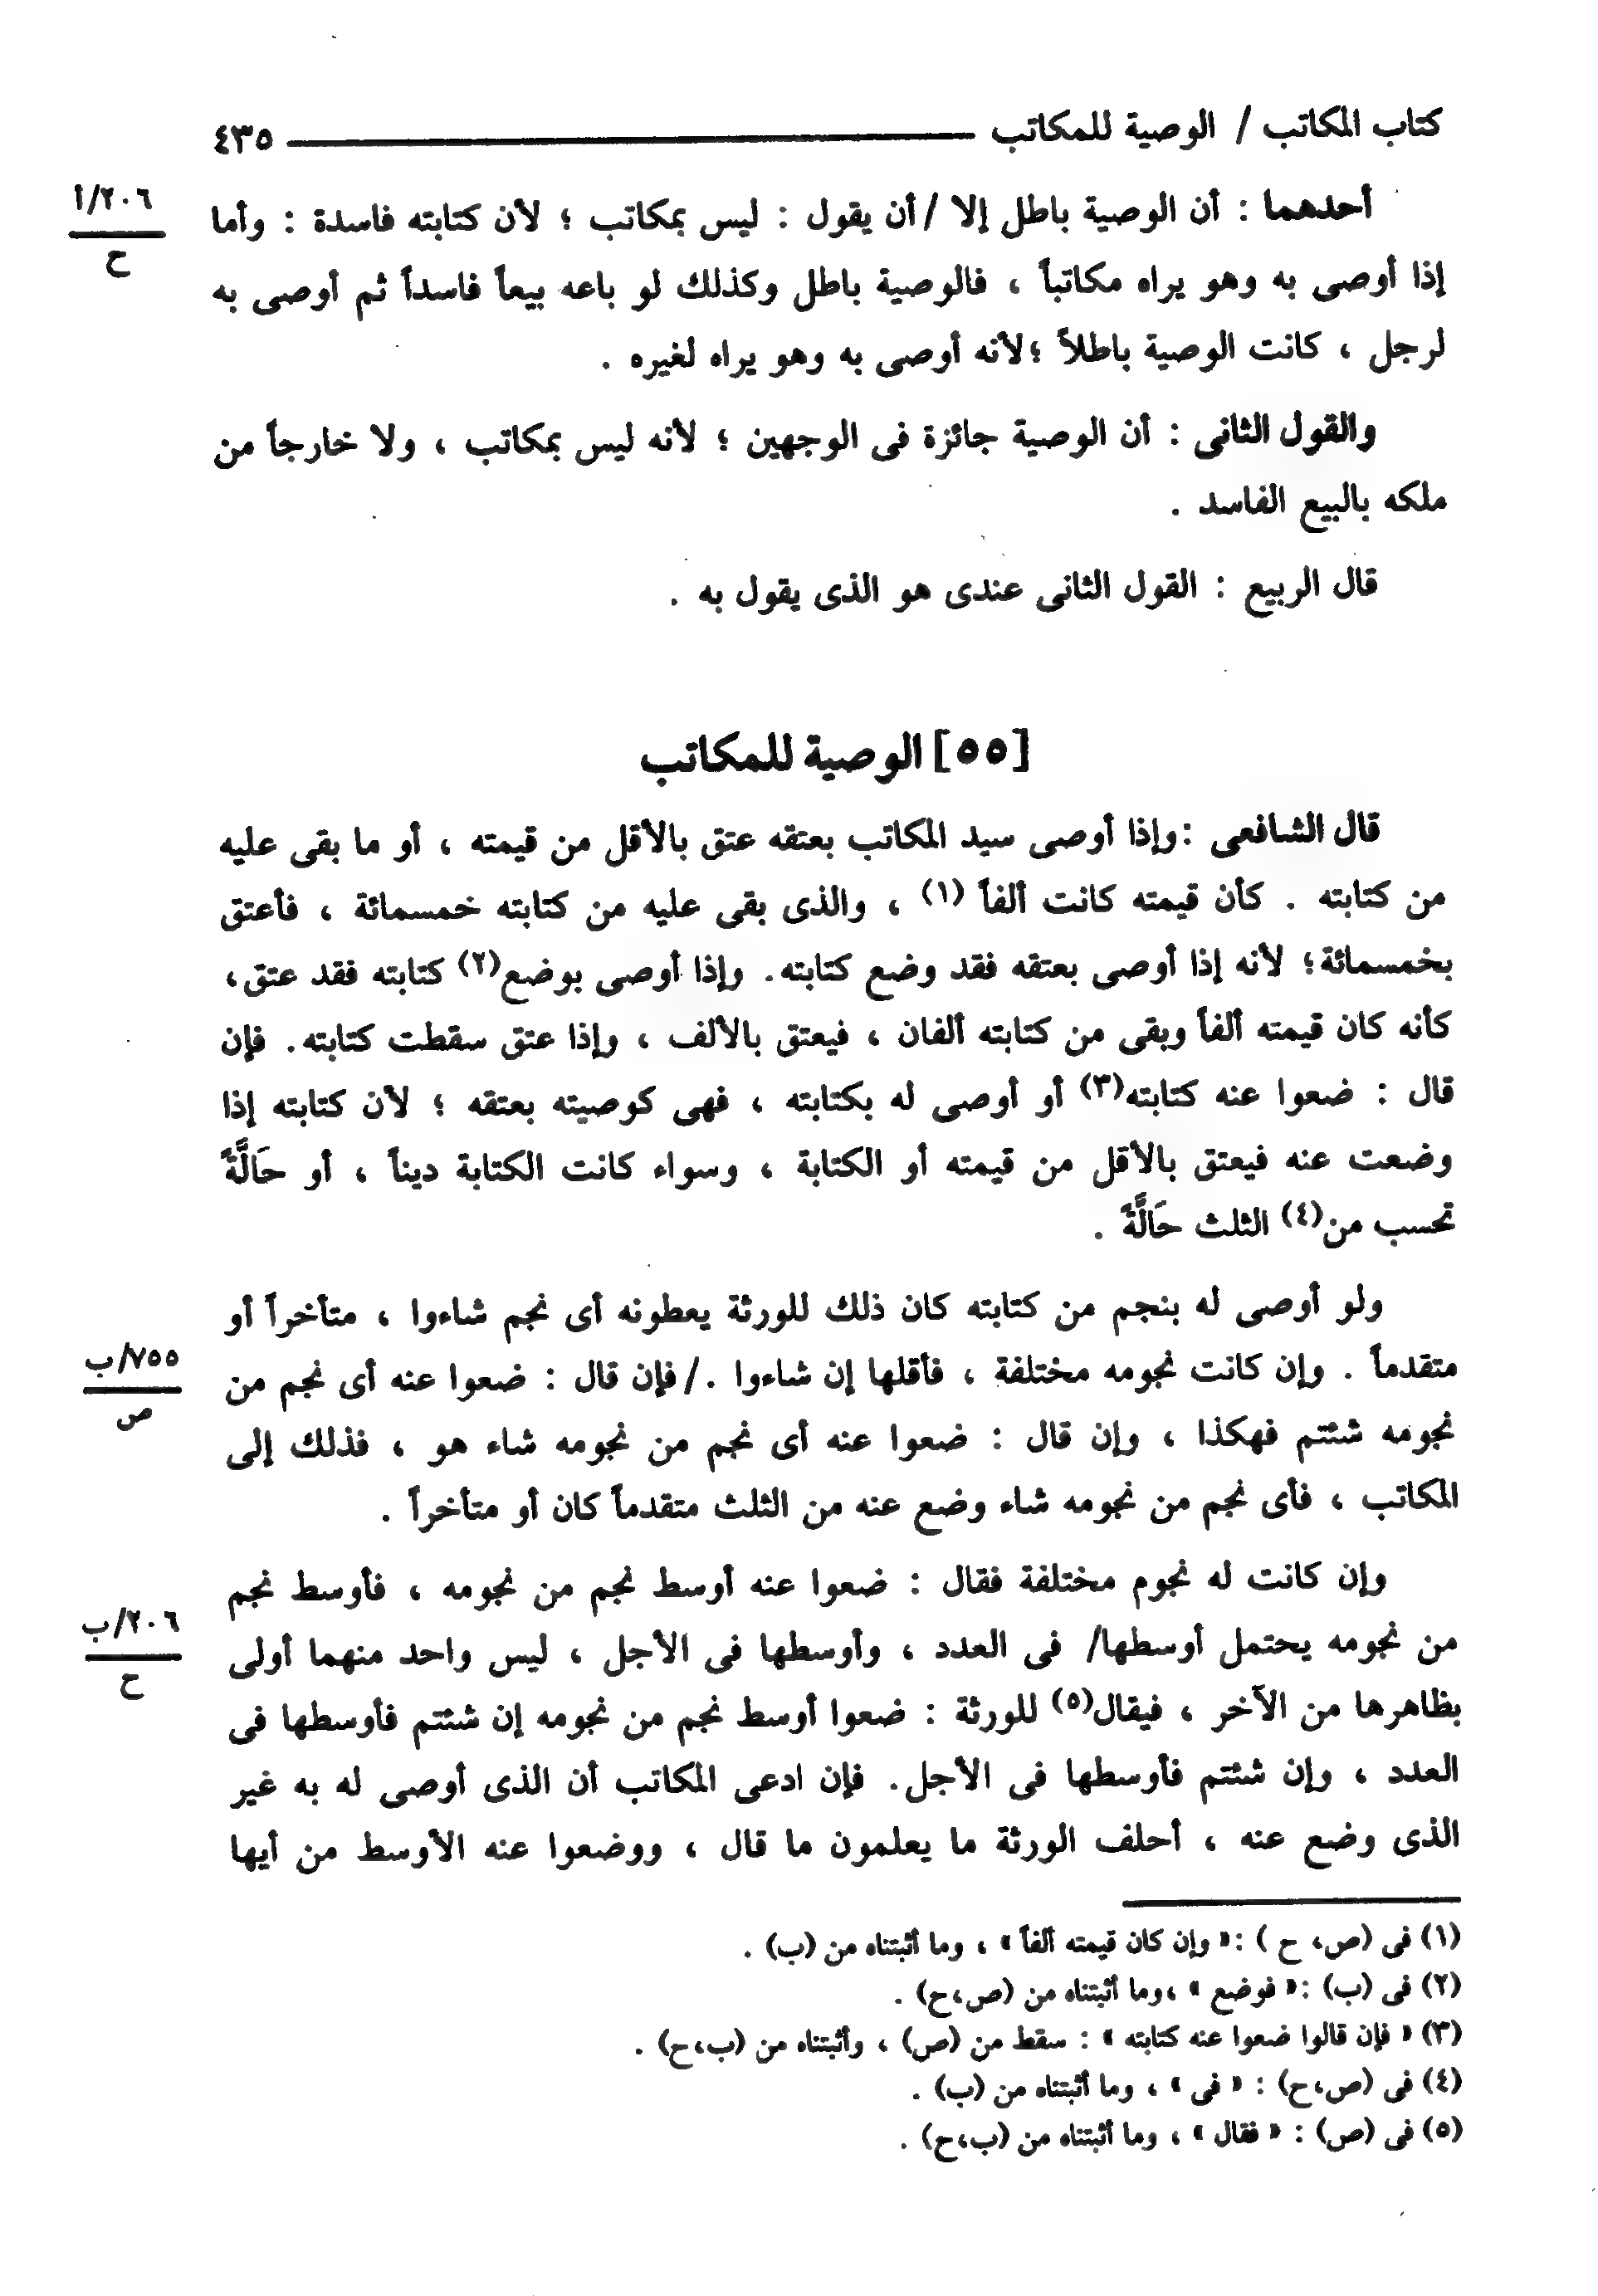 كتاب المكاتب / الوصية للمكاتب ٤٣٥
أحدهما : أن الوصية باطل إلا / أن يقول : ليس بمكاتب ؛ لأن كتابته فاسدة : وأما
٢٠٦/أ
ح
إذا أوصى به وهو يراه مكاتباً ، فالوصية باطل وكذلك لو باعه بيعاً فاسداً ثم أوصى به
لرجل ، كانت الوصية باطلاً ؛لأنه أوصى به وهو يراه لغيره .
والقول الثانى : أن الوصية جائزة فى الوجهين ؛ لأنه ليس بمكاتب ، ولا خارجاً من
ملكه بالبيع الفاسد .
قال الربيع : القول الثانى عندى هو الذى يقول به .
[٥٥] الوصية للمكاتب
قال الشافعى :وإذا أوصى سيد المكاتب بعتقه عتق بالأقل من قيمته ، أو ما بقى عليه
من كتابته . كأن قيمته كانت ألفاً (١) ، والذى بقى عليه من كتابته خمسمائة ، فأعتق
بخمسمائة؛ لأنه إذا أوصى بعتقه فقد وضع كتابته. وإذا أوصى بوضع(٢) كتابته فقد عتق،
كأنه كان قيمته ألفاً وبقى من كتابته ألفان ، فيعتق بالألف ، وإذا عتق سقطت كتابته. فإن
قال : ضعوا عنه كتابته(٣) أو أوصى له بكتابته ، فهى كوصيته بعتقه ؛ لأن كتابته إذا
وضعت عنه فيعتق بالأقل من قيمته أو الكتابة ، وسواء كانت الكتابة ديناً ، أو حَالَّةً
تحسب من(٤) الثلث حَالَّةً .
ولو أوصى له بنجم من كتابته كان ذلك للورثة يعطونه أى نجم شاءوا ، متأخراً أو
متقدماً . وإن كانت نجومه مختلفة ، فأقلها إن شاءوا ./ فإن قال : ضعوا عنه أى نجم من
٧٥٥/ب
ص
نجومه شئتم فهكذا ، وإن قال : ضعوا عنه أى نجم من نجومه شاء هو ، فذلك إلى
المكاتب ، فأى نجم من نجومه شاء وضع عنه من الثلث متقدماً كان أو متأخراً .
وإن كانت له نجوم مختلفة فقال : ضعوا عنه أوسط نجم من نجومه ، فأوسط نجم
من نجومه يحتمل أوسطها/ فى العدد ، وأوسطها فى الأجل ، ليس واحد منهما أولى
٢٠٦/ب
ح
بظاهرها من الآخر ، فيقال(٥) للورثة : ضعوا أوسط نجم من نجومه إن شئتم فأوسطها فى
العدد ، وإن شئتم فأوسطها فى الأجل. فإن ادعى المكاتب أن الذى أوصى له به غير
الذى وضع عنه ، أحلف الورثة ما يعلمون ما قال ، ووضعوا عنه الأوسط من أيها
(١) فى (ص، ح ) :« وإن كان قيمته ألفاً » ، وما أثبتناه من (ب) .
(٢) فى (ب) :« فوضع » ،وما أثبتناه من (ص،ح) .
(٣) « فإن قالوا ضعوا عنه كتابته » : سقط من (ص) ، وأثبتناه من (ب،ح) .
(٤) فى (ص،ح) : « فى » ، وما أثبتناه من (ب) .
(٥) فى (ص) : « فقال » ، وما أثبتناه من (ب،ح) .